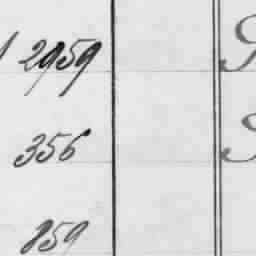 2959
356
859